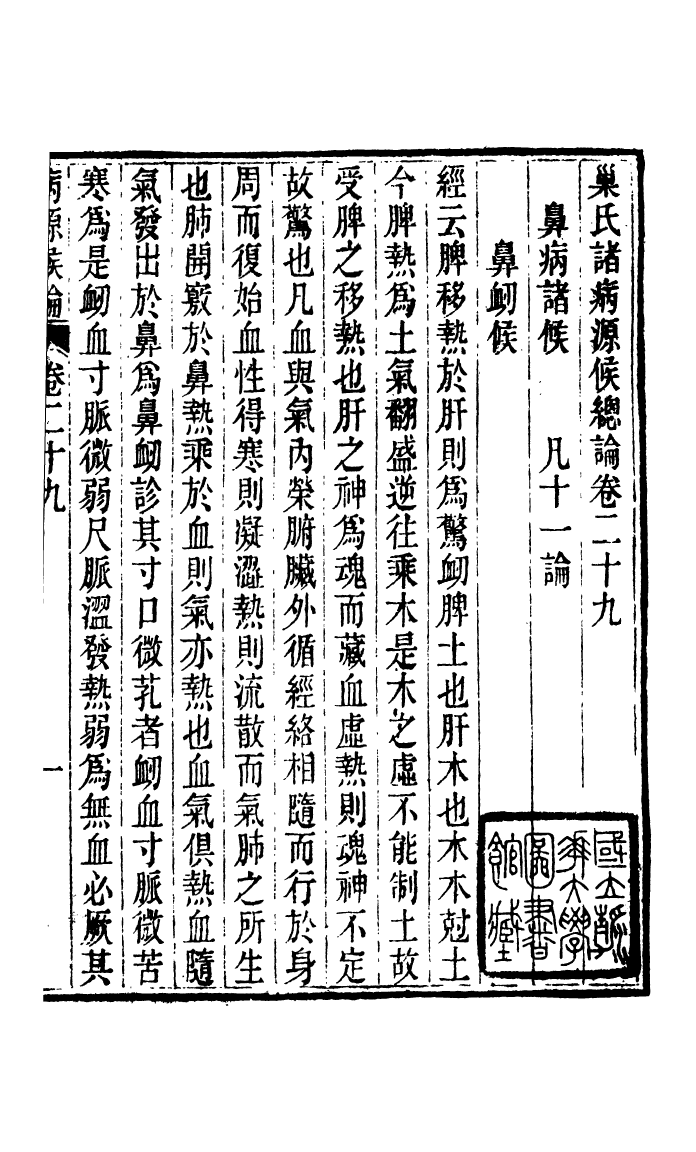 巢氏諸病源候總論卷二十九
鼻病諸候　　凡十一論
鼻衂候
經云脾移熱於肝則爲驚衂脾土也肝木也木本尅土
今脾熱爲土氣翻盛逆往乘木是木之虛不能制土故
受脾之移熱也肝之神爲魂而藏血虛熱則魂神不定
故驚也凡血與氣內榮腑臟外循經絡相隨而行於身
周而復始血性得寒則凝澀熱則流散而氣肺之所生
也肺開竅於鼻熱乘於血則氣亦熱也血氣俱熱血隨
氣發出於鼻爲鼻衂診其寸口微芤者衂血寸脈微苦
寒爲是衂血寸脈微弱尺脈澀發熱弱爲無血必厥其
病源候論　卷二十九　一
國立
大學
圖書
館藏